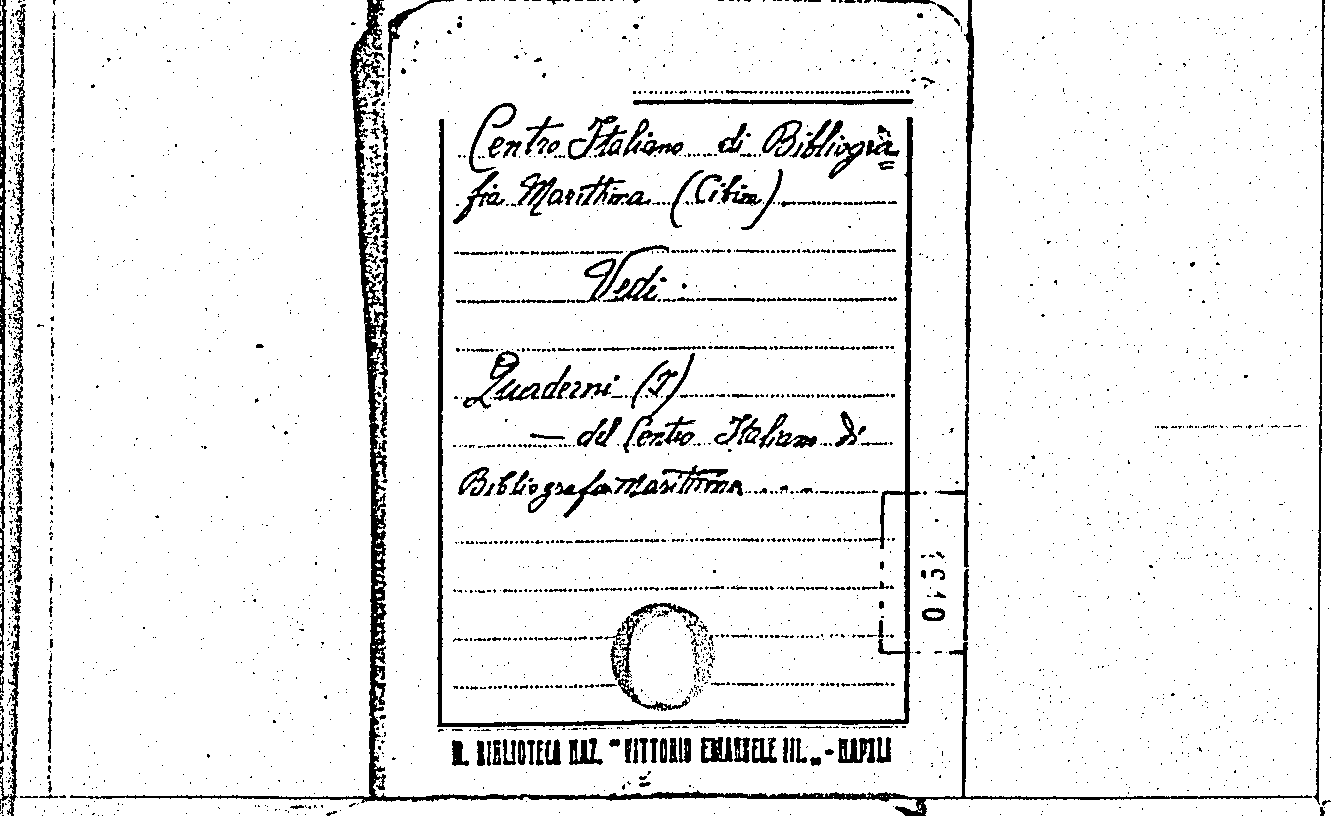 Centro Italiano di Bibliogra=
fia Marittima (Cibim)
Vedi
Quaderni (I)
— del Centro Italiano di
Bibliografia Marittima . . .
R. BIBLIOTECA NAZ. "VITTORIO EMANUELE III." - NAPOLI